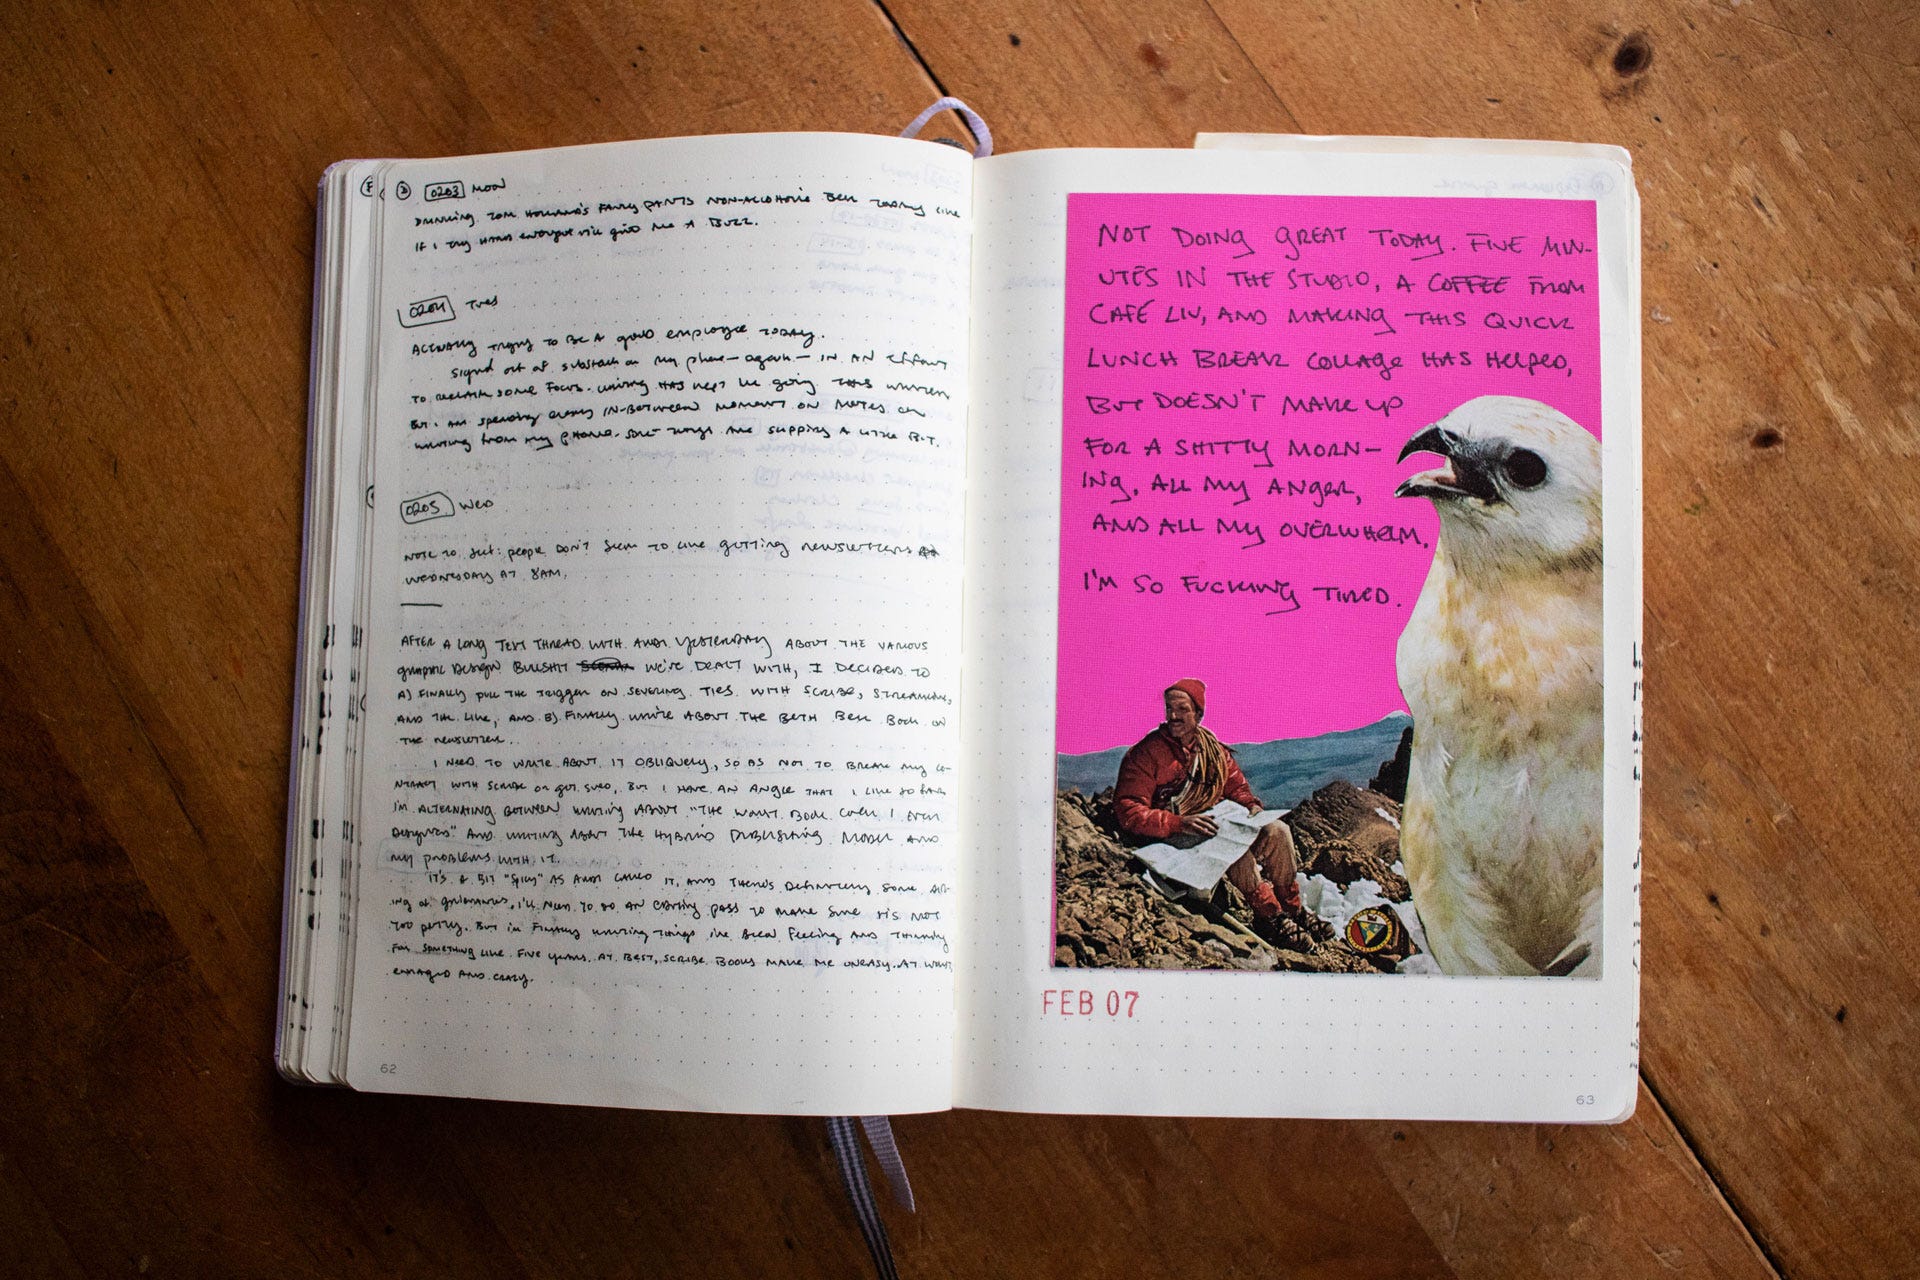 0203 MON
DRINKING TOM HOLLAND'S FANCY PANTS NON-ALCOHOLIC BEER TODAY LIKE
IF I TRY HARD ENOUGH IT'LL GIVE ME A BUZZ.
0204 TUES
ACTUALLY TRYING TO BE A GOOD EMPLOYEE TODAY.
SIGNED OUT OF SUBSTACK ON MY PHONE — AGAIN — IN AN EFFORT
TO RECLAIM SOME FOCUS. WRITING HAS KEPT ME GOING THIS WINTER
BUT I AM SPENDING EVERY IN-BETWEEN MOMENT ON NOTES OR
WRITING FROM MY PHONE. SOME THINGS ARE SLIPPING A LITTLE BIT.
0205 WED
NOTE TO SELF: PEOPLE DON'T SEEM TO LIKE GETTING NEWSLETTERS
WEDNESDAY AT 8AM.
AFTER A LONG TEXT THREAD WITH ANDI YESTERDAY ABOUT THE VARIOUS
GRAPHIC DESIGN BULLSHIT WE'VE DEALT WITH, I DECIDED TO
A) FINALLY PULL THE TRIGGER ON SEVERING TIES WITH SCRIBE, STREAMLINE,
AND THE LIKE, AND B) FINALLY WRITE ABOUT THE BETH BELL BOOK ON
THE NEWSLETTER.
I NEED TO WRITE ABOUT IT OBLIQUELY, SO AS NOT TO BREAK MY CO-
NTRACT WITH SCRIBE OR GET SUED, BUT I HAVE AN ANGLE THAT I LIKE SO FAR.
I'M ALTERNATING BETWEEN WRITING ABOUT "THE WORST BOOK COVER I EVER
DESIGNED" AND WRITING ABOUT THE HYBRID PUBLISHING MODEL AND
MY PROBLEMS WITH IT.
IT'S A BIT "SPICY" AS ANDI CALLED IT, AND THERE'S DEFINITELY SOME AIR-
ING OF GRIEVANCES, I'LL NEED TO DO AN EDITING PASS TO MAKE SURE IT'S NOT
TOO PETTY. BUT I'M FINALLY WRITING THINGS I'VE BEEN FEELING AND THINKING
FOR SOMETHING LIKE FIVE YEARS. AT BEST, SCRIBE BOOKS MAKE ME UNEASY. AT WORST,
ENRAGED AND CRAZY.
62
NOT DOING GREAT TODAY. FIVE MIN-
UTES IN THE STUDIO, A COFFEE FROM
CAFÉ LIV, AND MAKING THIS QUICK
LUNCH BREAK COLLAGE HAS HELPED,
BUT DOESN'T MAKE UP
FOR A SHITTY MORN-
ING, ALL MY ANGER,
AND ALL MY OVERWHELM.
I'M SO FUCKING TIRED.
FEB 07
63